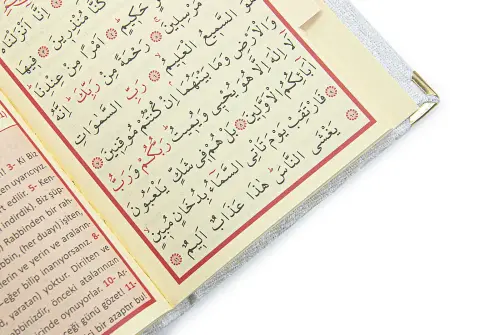 اِنَّٓا اَنْزَلْنَاهُ
كُنَّا مُنْذِر۪ينَ ف۪يهَا
حَك۪يمٍ اَمْرًا مِنْ عِنْدِنَا
مُرْسِل۪ينَ رَحْمَةً مِنْ رَبِّكَ اِنَّهُ
هُوَ السَّم۪يعُ الْعَل۪يمُ رَبِّ السَّمٰوَاتِ
وَالْاَرْضِ وَمَا بَيْنَهُمَا اِنْ كُنْتُمْ مُوقِن۪ينَ
لَٓا اِلٰهَ اِلَّا هُوَ يُحْي۪ي وَيُم۪يتُ رَبُّكُمْ وَرَبُّ
اٰبَٓائِكُمُ الْاَوَّل۪ينَ بَلْ هُمْ ف۪ي شَكٍّ يَلْعَبُونَ
فَارْتَقِبْ يَوْمَ تَأْتِي السَّمَٓاءُ بِدُخَانٍ مُب۪ينٍ
يَغْشَى النَّاسَ هٰذَا عَذَابٌ اَل۪يمٌ
3- Ki Biz
uyarıcıyız.
edilir. 5- Ken-
indirdik). Biz şüp-
Rabbinden bir rah-
(her duayı) işiten,
yerin ve araların-
eğer bilip inanıyorsanız. 8-
yaratan) yoktur. Dirilten ve
önceki atalarınızın
oynuyorlar. 10- Ar-
günü gözet! 11-
bir azaptır bu!